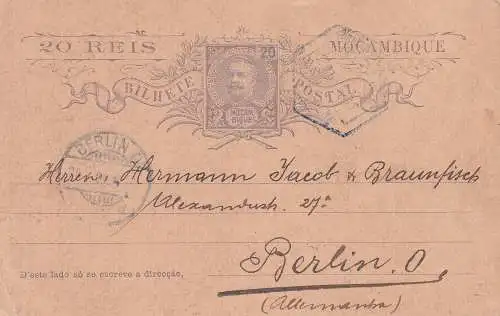 20 REIS
MOÇAMBIQUE
20
BILHETE POSTAL
MOÇAM
BIQUE
BERLIN
Herren Hermann Jacob & Braunfisch
Alexandustr. 27a
Berlin. O
(Allemanha)
D'este lado só se escreve a direcção.